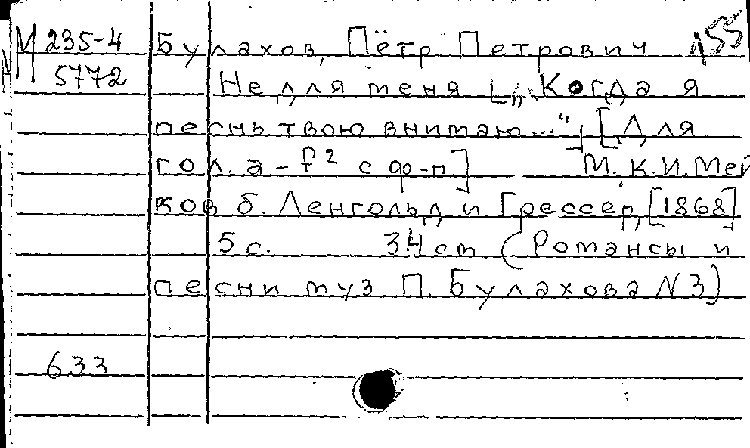 М 235-4 Булахов, Пётр Петрович 155
5772 Не для меня [„Когда я
песнь твою внимаю..."], [Для
гол. a - f² с ф-п] М. К. И. Мей
ков б. Ленгольд и Грессер, [1868]
5 с. 34 cm (Романсы и
песни муз П. Булахова N 3)
633